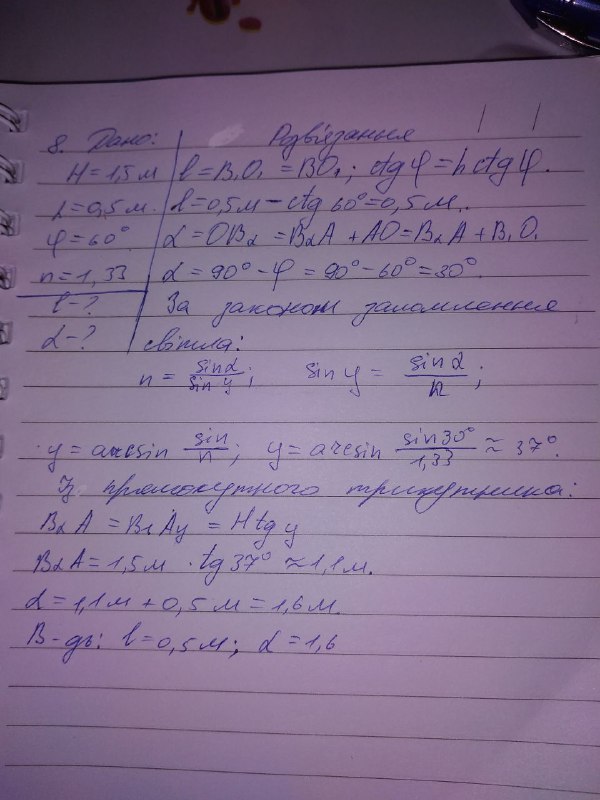 8. Дано: Розв'язання
H=1,5м l=B₁O₁=BO₁; ctgφ=hctgφ.
L=0,5м. l=0,5м-ctg60°=0,5м.
φ=60° L=OB₂=B₂A+AO=B₂A+B₁O₁
n=1,33 α=90°-φ=90°-60°=30°.
l-? За законом заломлення
L-? світла:
n = sinα/sin y; sin y = sin α/n;
y=arcsin sin/n; y=arcsin sin30°/1,33 ≈ 37°.
Із прямокутного трикутника:
B₂A = B₁Ay = Htg y
B₂A=1,5м · tg37° ≈1,1м.
L=1,1м+0,5м=1,6м.
В-дь: l=0,5м; L=1,6